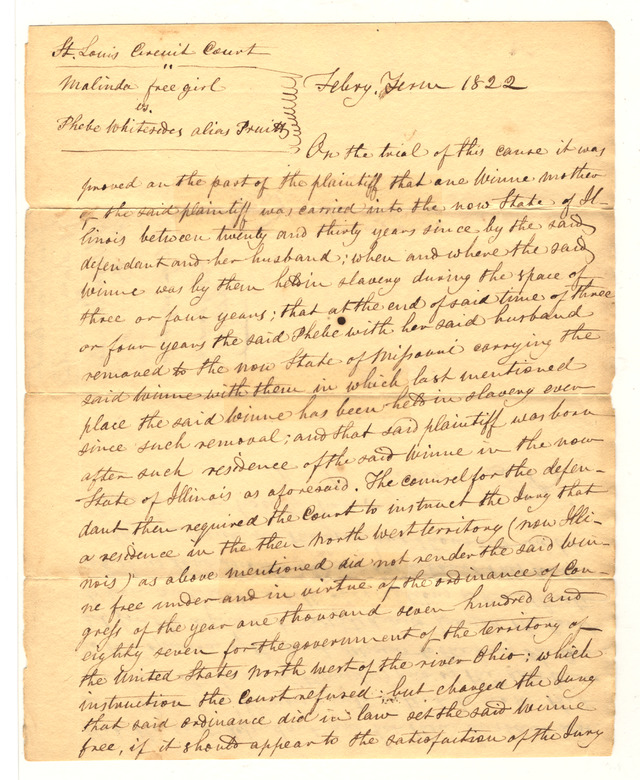 St. Louis Circuit Court
Malinda free girl
vs.
Phebe Whitesides alias Pruitt
Febry. Term 1822
On the trial of this cause it was
proved on the part of the plaintiff that one Winne mother
of the said plaintiff was carried into the now State of Il-
linois between twenty and thirty years since by the said
defendant and her husband; when and where the said
Winne was by them held in slavery during the space of
three or four years; that at the end of said time of three
or four years the said Phebe with her said husband
removed to the now State of Missouri carrying the
said Winne with them in which last mentioned
place the said Winne has been held in slavery ever
since such removal; and that said plaintiff was born
after such residence of the said Winne in the now
State of Illinois as aforesaid. The counsel for the defen-
dant then required the Court to instruct the Jury that
a residence in the then North West territory (now Illi-
nois) as above mentioned did not render the said Win-
ne free under and in virtue of the ordinance of Con-
gress of the year one thousand seven hundred and
eighty seven for the government of the territory of
the United States North west of the river Ohio; which
instruction the Court refused: but charged the Jury
that said ordinance did in law set the said Winne
free, if it should appear to the satisfaction of the Jury